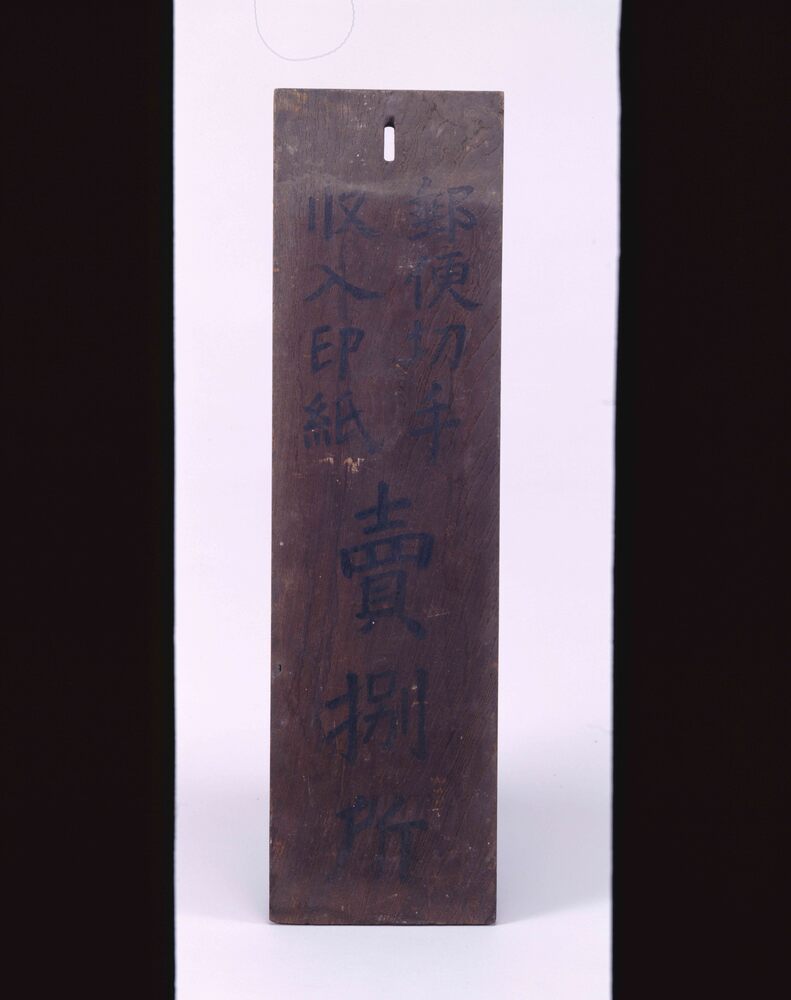 郵便切手
収入印紙
賣捌所